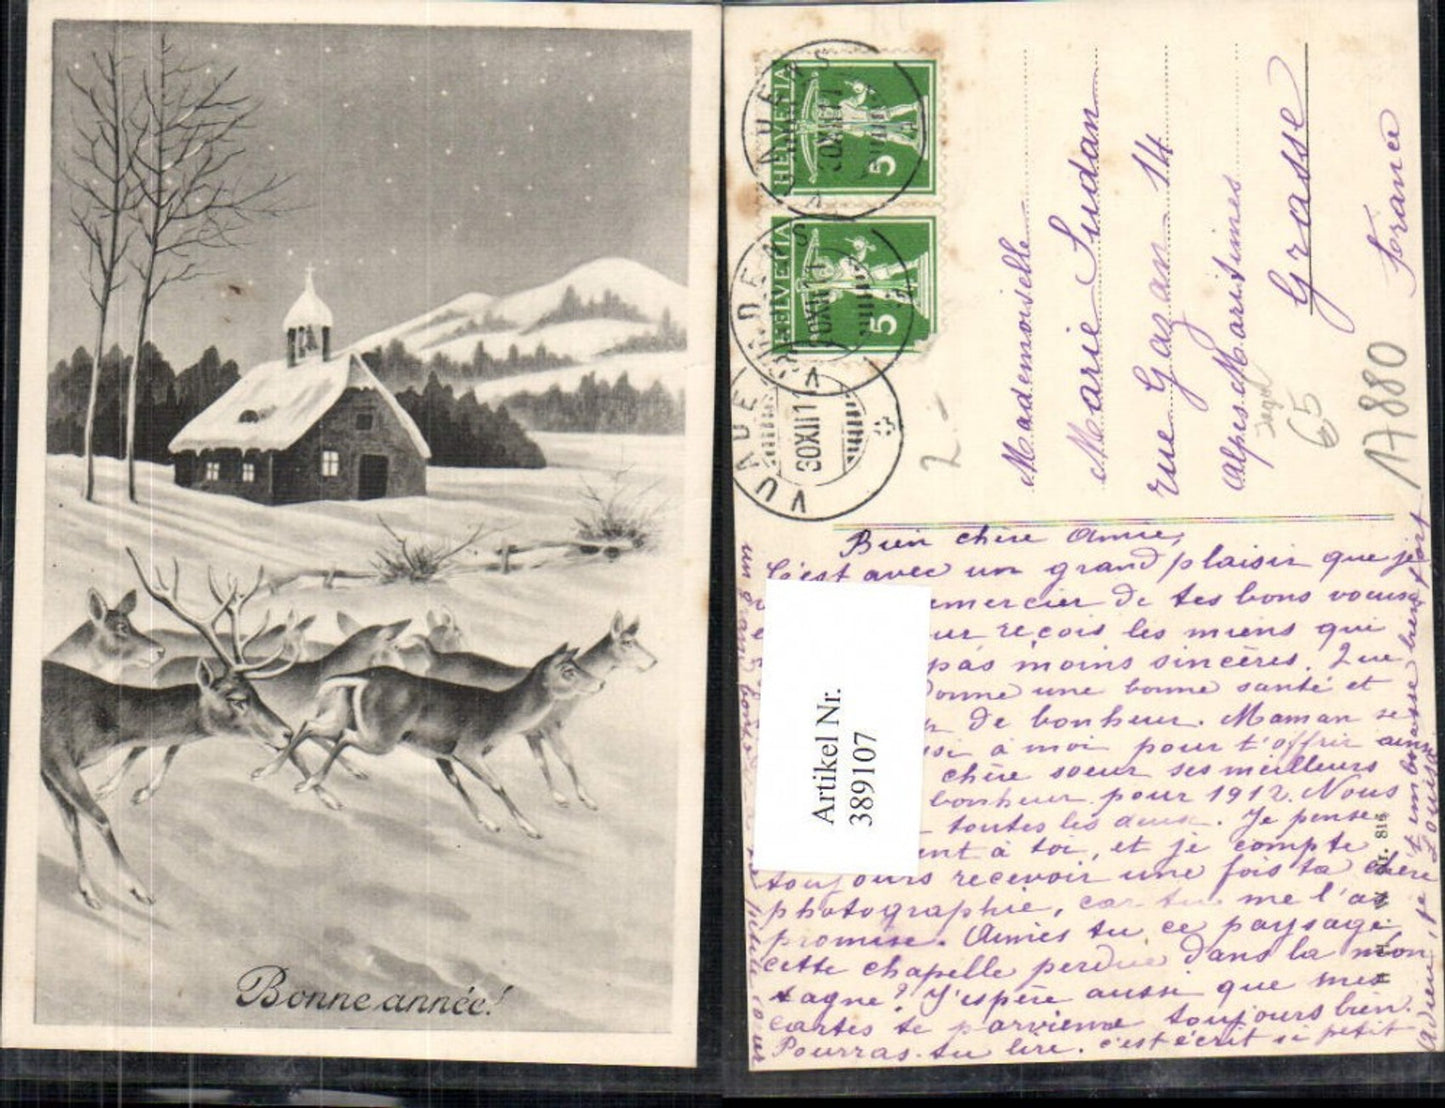 Bonne année!
HELVETIA
5
HELVETIA
5
VUADENS
30XII11
VUADENS
30XII11
VUADENS
30XII11
Mademoiselle
Marie Sudan
rue Gazan 14
Alpes-Maritimes
Grasse
France
65
17880
2
Artikel Nr.
389107
Bien chère Amie,
C'est avec un grand plaisir que je
emercier de tes bons voeux
ur reçois les miens qui
pas moins sincères. Que
donne une bonne santé et
de bonheur. Maman se
ssi à moi pour t'offrir ainsi
chère soeur ses meilleurs
bonheur pour 1912. Nous
toutes les deux. Je pense
ent à toi, et je compte
toujours recevoir une fois ta chère
photographie, car tu me l'as
promise. Aimes tu ce paysage
cette chapelle perdue dans la mon
tagne? J'espère aussi que mes
cartes te parvienne toujours bien.
Pourras-tu lire. c'est écrit si petit
Adieu, je t'embrasse bien fort
Louisa
un grand bonjour à ta petite soeur
815